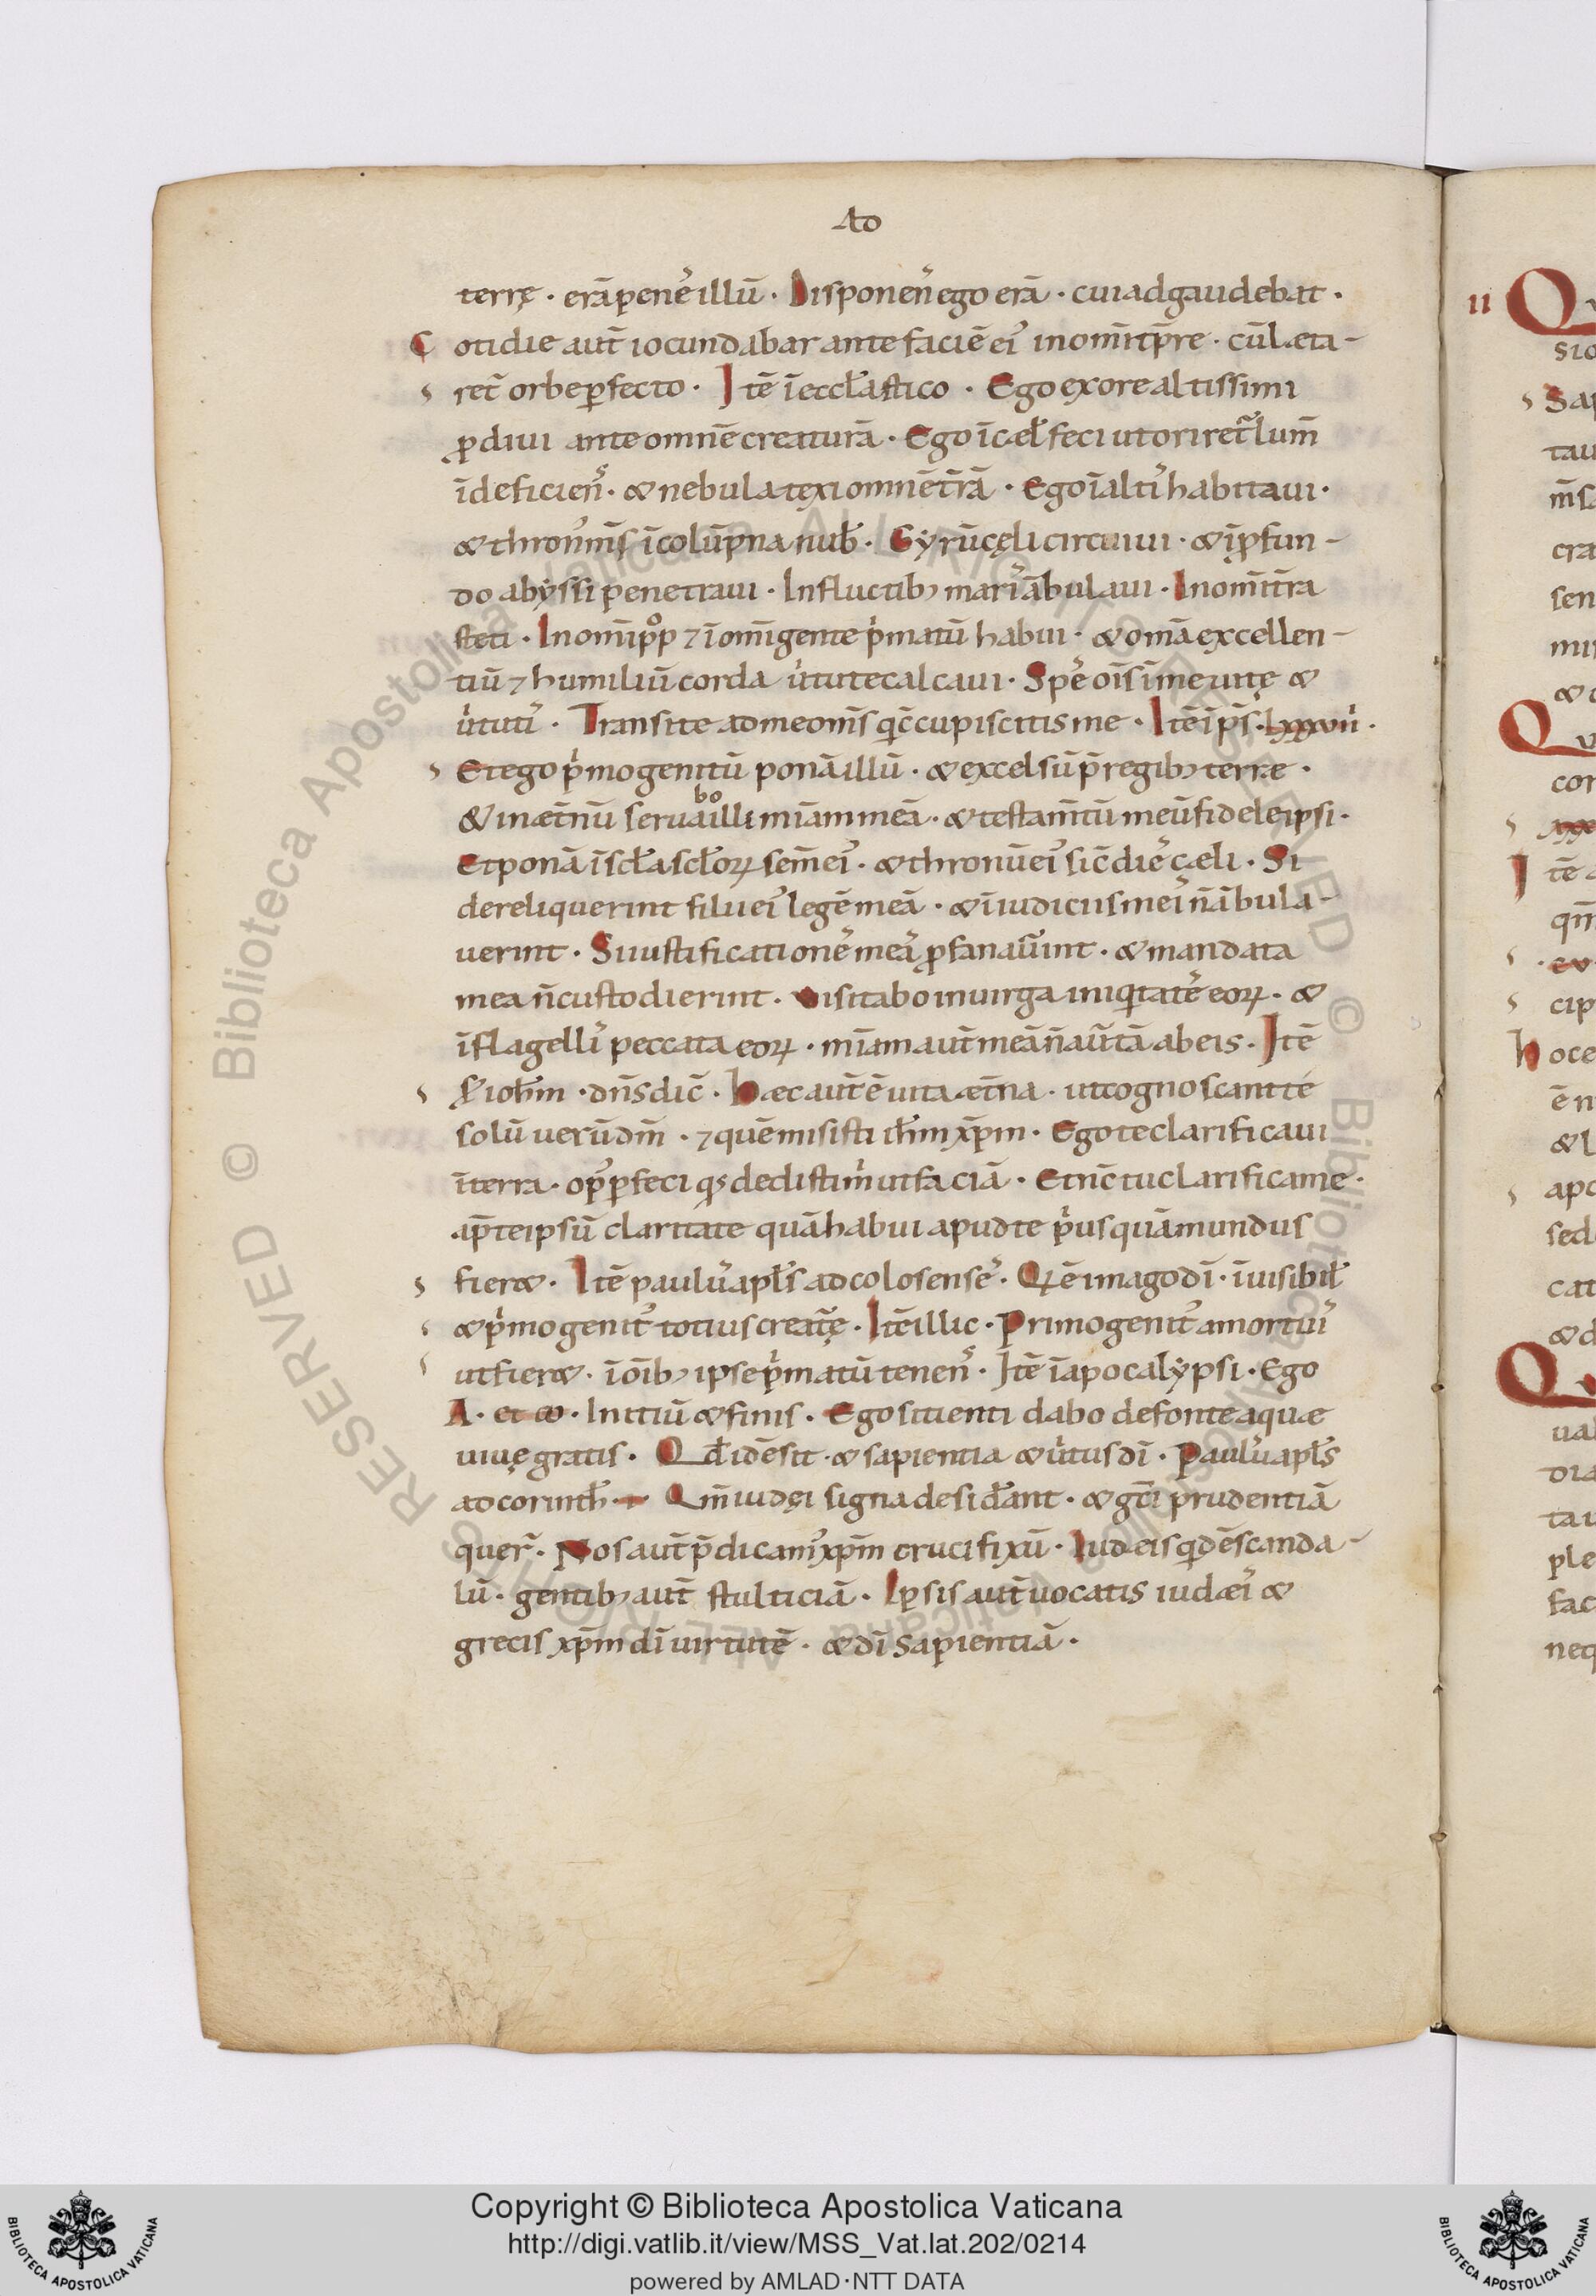 Ad
terrę · erā penes illū · Disponens ego erā · cui adgaudebat ·
Cotidie aut̄ iocundabar ante faciē ei᾽ in om̄i tp̄re · cū læta-
ret᾽ orbe ꝑfecto · Itē ī eccl̄astico · Ego ex ore altissimi
ꝓdiui ante omnē creaturā · Ego ī cæl̄ feci ut oriret᾽ lum̄
īdeficiens · & nebula texi omnē tr̄ā · Ego ī altis habitaui ·
& thronus m̄s ī colūpna nub̄ · Gyrū cęli circuiui · & ī ꝓfun-
do abyssi penetraui · In fluctib; maris ābulaui · In om̄i tr̄a
steti · In om̄i pop̄ ⁊ ī om̄i gente pͥmatū habui · & om̄a excellen-
tiū ⁊ humiliū corda uͥtute calcaui · Spes oīs ī me uitę &
uͥtutis · Transite ad me om̄s qͥ c̄cupiscitis me · Itē ī ps̄ · lxxxviii ·
Et ego pͥmogenitū ponā illū · & excelsū p̄ regib; terræ ·
& in æt̄nū seruabo illi mīam meā · & testam̄tū meū fidele ipsi ·
Et ponā ī scl̄a scl̄oꝝ sem̄ ei᾽ · & thronū ei᾽ sic̄ dies cæli · Si
dereliquerint filii ei᾽ legē meā · & ī iudiciis meis n̄ ābula-
uerint · Si iustificationes meas ꝓfanauerint · & mandata
mea n̄ custodierint · Uisitabo in uirga iniqͥtates eoꝝ · &
ī flagellis peccata eoꝝ · mīam aut̄ meā n̄ aufer̄ā ab eis · Itē
s̄ ioh̄m · dn̄s dic̄ · Hæc aut̄ ē uita æt̄na · ut cognoscant te
solū uerū dm̄ · ⁊ quē misisti ih̄m xp̄m · Ego te clarificaui
ī terra · op᾽ ꝑfeci qđ dedisti mͥ ut faciā · Et nc̄ tu clarifica me ·
ap̄ te ipsū claritate quā habui apud te pͥusquā mundus
fier& · Itē paulus apl̄s ad colosenses · Qͥ ē imago dī · īuisibil̄
& pͥmogenit᾽ totius creat̄ę · Itē illic · Primogenit᾽ a mortuis
ut fier& · ī oīb; ipse pͥmatū tenens · Itē ī apocalypsi · Ego
A · et ω · Initiū & finis · Ego sitienti dabo de fonte aquæ
uiuę gratis · Qđ idē sit · & sapientia & uͥtus dī · Paulus apl̄s
ad corinth̄ · i · Qm̄ iudęi signa desid̄ant · & gc̄i prudentiā
quer̄ · Nos aut̄ p̄dicam᾽ xp̄m crucifixū · Iudæis qͥdē scanda-
lū · gentib; aut̄ stulticiā · Ipsis aut̄ uocatis iudæis &
grecis xp̄m dī uirtutē · & dī sapientiā ·
Copyright © Biblioteca Apostolica Vaticana
http://digi.vatlib.it/view/MSS_Vat.lat.202/0214
powered by AMLAD·NTT DATA